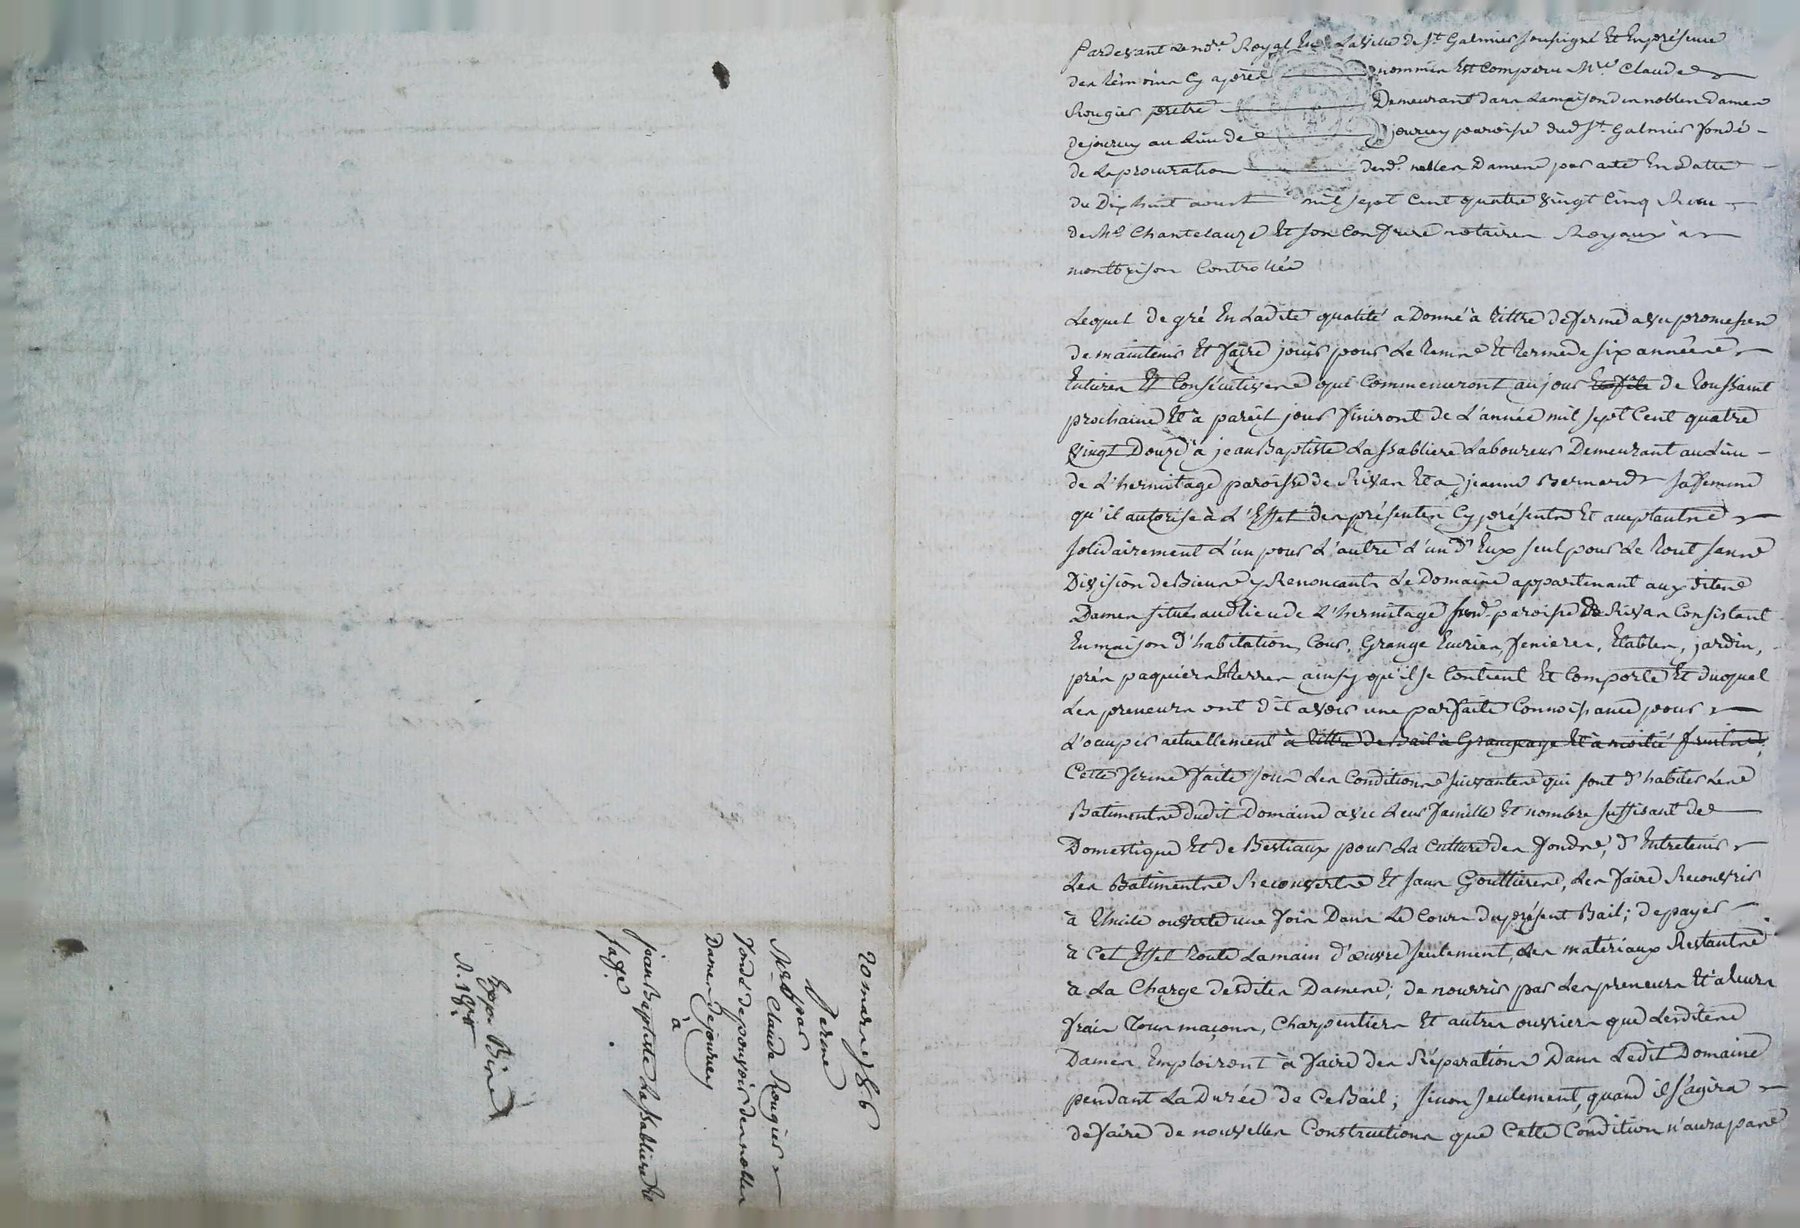 Pardevant Le no.re Royal En La Ville de St. Galmier soussigné Et En présence
des témoins Cy aprés nommés Est Comparu Mre. Claude
Rougier prêtre Demeurant dans La maison des nobles dames
de jourcey au Lieu de jourcey paroisse dud. St. Galmier fondé
de La procuration desd. nobles Dames par acte En Datte
du Dix huit aoust mil sept Cent quatre vingt Cinq Recu
de Me Chantelauze Et son Confrere notaires Royaux à
montbrison Controllée
Lequel de gré En Ladite qualité a Donné à tittre de ferme avec promesses
de maintenir Et faire jouir pour Le tems Et terme de six années
Entieres Et Consécutives qui Commenceront au jour de toussaint
prochaine Et à pareil jour finiront de L'année mil sept Cent quatre
vingt Douze à jean Baptiste Lassabliere Laboureur Demeurant au Lieu
de L'hermitage paroisse de Rivas Et a jeanne Bernard sa femme
qu'il autorise à L'Effet des présentes Cy présents Et acceptants
solidairement L'un pour L'autre L'un d'Eux seul pour Le tout sans
Division de Biens y Renoncants Le Domaine appartenant aux dites
Dames situé audt lieu de L'hermitage susd. paroisse de Rivas Consistant
En maison d'habitation, Cour, Grange Ecuries, fenieres, Etables, jardin,
prés paquiers Et terres ainsy qu'il se Contient Et Comporte Et duquel
Les preneurs ont dit avoir une parfaite Connoissance pour
L'occuper actuellement à tittre de Bail à Grangeage Et à moitié fruits,
Cette ferme faite sous Les Conditions suivantes qui sont d'habiter Les
Batiments dudit Domaine avec Leur famille Et nombre suffisant de
Domestique Et de Bestiaux pour La Culture des fonds, d'Entretenir
Les Batiments Recouverts Et sans Gouttieres, Les faire Recouvrir
à thuile ouverte une fois Dans Le Cours du présent Bail; de payer
à Cet Effet toute La main d'œuvre seulement, Les materiaux Restants
à La Charge desdites Dames; de nourrir par Les preneurs Et à Leurs
frais tous maçons, Charpentiers Et autres ouvriers que Lesdites
Dames Emploiront à faire des Réparations Dans Ledit Domaine
pendant La Durée de Ce Bail; sinon seulement, quand il s'agira
de faire de nouvelles Constructions que Cette Condition n'aura pas
20 mars 1786
ferme
par
Sr. Claude Rougier
fondé de pouvoir des nobles
Dames de jourcey
à
jean Baptiste Lassabliere Et
sa fe.
Exp.on